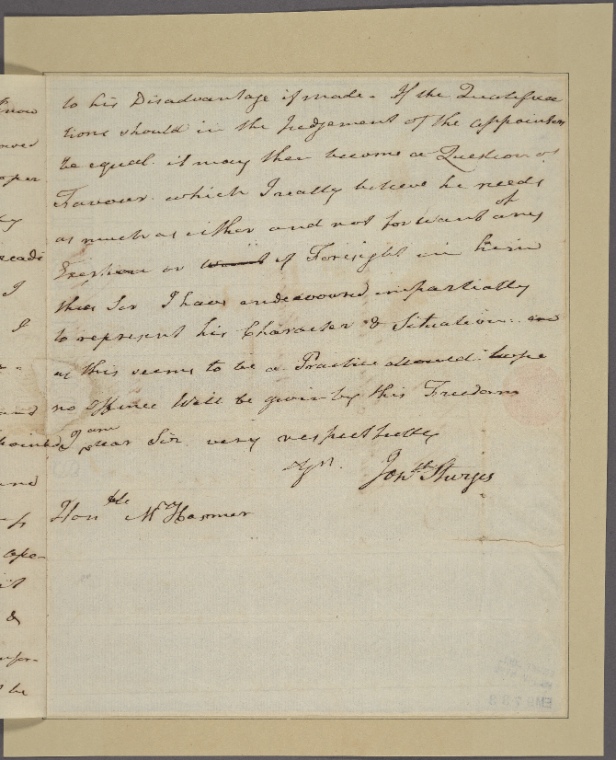 to his Disadvantage if made. If the Qualifica
tions should in the Judgement of the appointers
be equal. it may then become a Question of
Favour. which I really believe he needs
as much as either and not for want of any
Exertion or want of Foresight in him
thus Sir I have endeavoured impartially
to represent his Character & Situation. and
as this seems to be a Practice allowed. hope
no offence Will be given by this Freedom
I am dear Sir very respectfully
Jonth Sturges
Honble Mr Hosmer